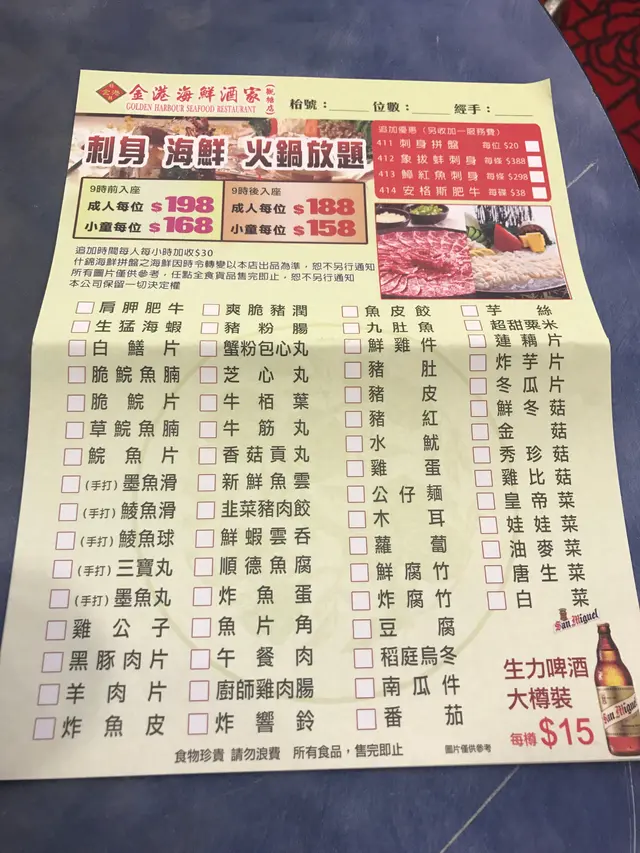 金港 金港海鮮酒家 (觀塘店)
GOLDEN HARBOUR SEAFOOD RESTAURANT
枱號：_____ 位數：_____ 經手：_____
刺身 海鮮 火鍋放題
9時前入座
成人每位 $198
小童每位 $168
9時後入座
成人每位 $188
小童每位 $158
追加優惠（另收加一服務費）
411 刺身拼盤 每位 $20
412 象拔蚌刺身 每條 $388
413 鱆紅魚刺身 每條 $298
414 安格斯肥牛 每碟 $38
追加時間每人每小時加收$30
什錦海鮮拼盤之海鮮因時令轉變以本店出品為準，恕不另行通知
所有圖片僅供參考，任點全食貨品售完即止，恕不另行通知
本公司保留一切決定權
肩胛肥牛
生猛海蝦
白鱔片
脆鯇魚腩
脆鯇片
草鯇魚腩
鯇魚片
(手打) 墨魚滑
(手打) 鯪魚滑
(手打) 鯪魚球
(手打) 三寶丸
(手打) 墨魚丸
雞公子
黑豚肉片
羊肉片
炸魚皮
爽脆豬潤
豬粉腸
蟹粉包心丸
芝心丸
牛栢葉
牛筋丸
香菇貢丸
新鮮魚雲
韭菜豬肉餃
鮮蝦雲吞
順德魚腐
炸魚蛋
魚片角
午餐肉
廚師雞肉腸
炸響鈴
魚皮餃
九肚魚
鮮雞件
豬肚
豬皮
豬紅
水魷
雞蛋
公仔麵
木耳
蘿蔔
鮮腐竹
炸腐竹
豆腐
稻庭烏冬
南瓜件
番茄
芋絲
超甜粟米
蓮藕片
炸芋片
冬瓜片
鮮冬菇
金菇
秀珍菇
雞比菇
皇帝菜
娃娃菜
油麥菜
唐生菜
白菜
San Miguel
生力啤酒
大樽裝
每樽 $15
San Miguel
食物珍貴 請勿浪費 所有食品，售完即止
圖片僅供參考